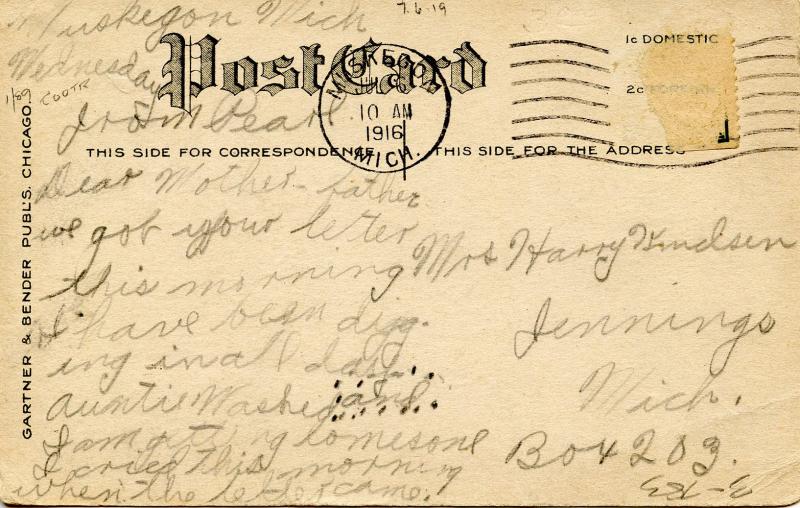 7.6.19
Muskegon Mich
Wednesday
Post Card
MUSKEGON
JUL 6
10 AM
1916
MICH.
1c DOMESTIC
2c FOREIGN
1/89
From Pearl
THIS SIDE FOR CORRESPONDENCE
THIS SIDE FOR THE ADDRESS
GARTNER & BENDER PUBL'S. CHICAGO.
Dear Mother - father
we got your letter
this morning
I have been digg-
ing in all day
auntie Washed and
I am getting lomesone
I cried this morning
when the letter came.
Mrs Harry
Jennings
Mich.
Box 203.